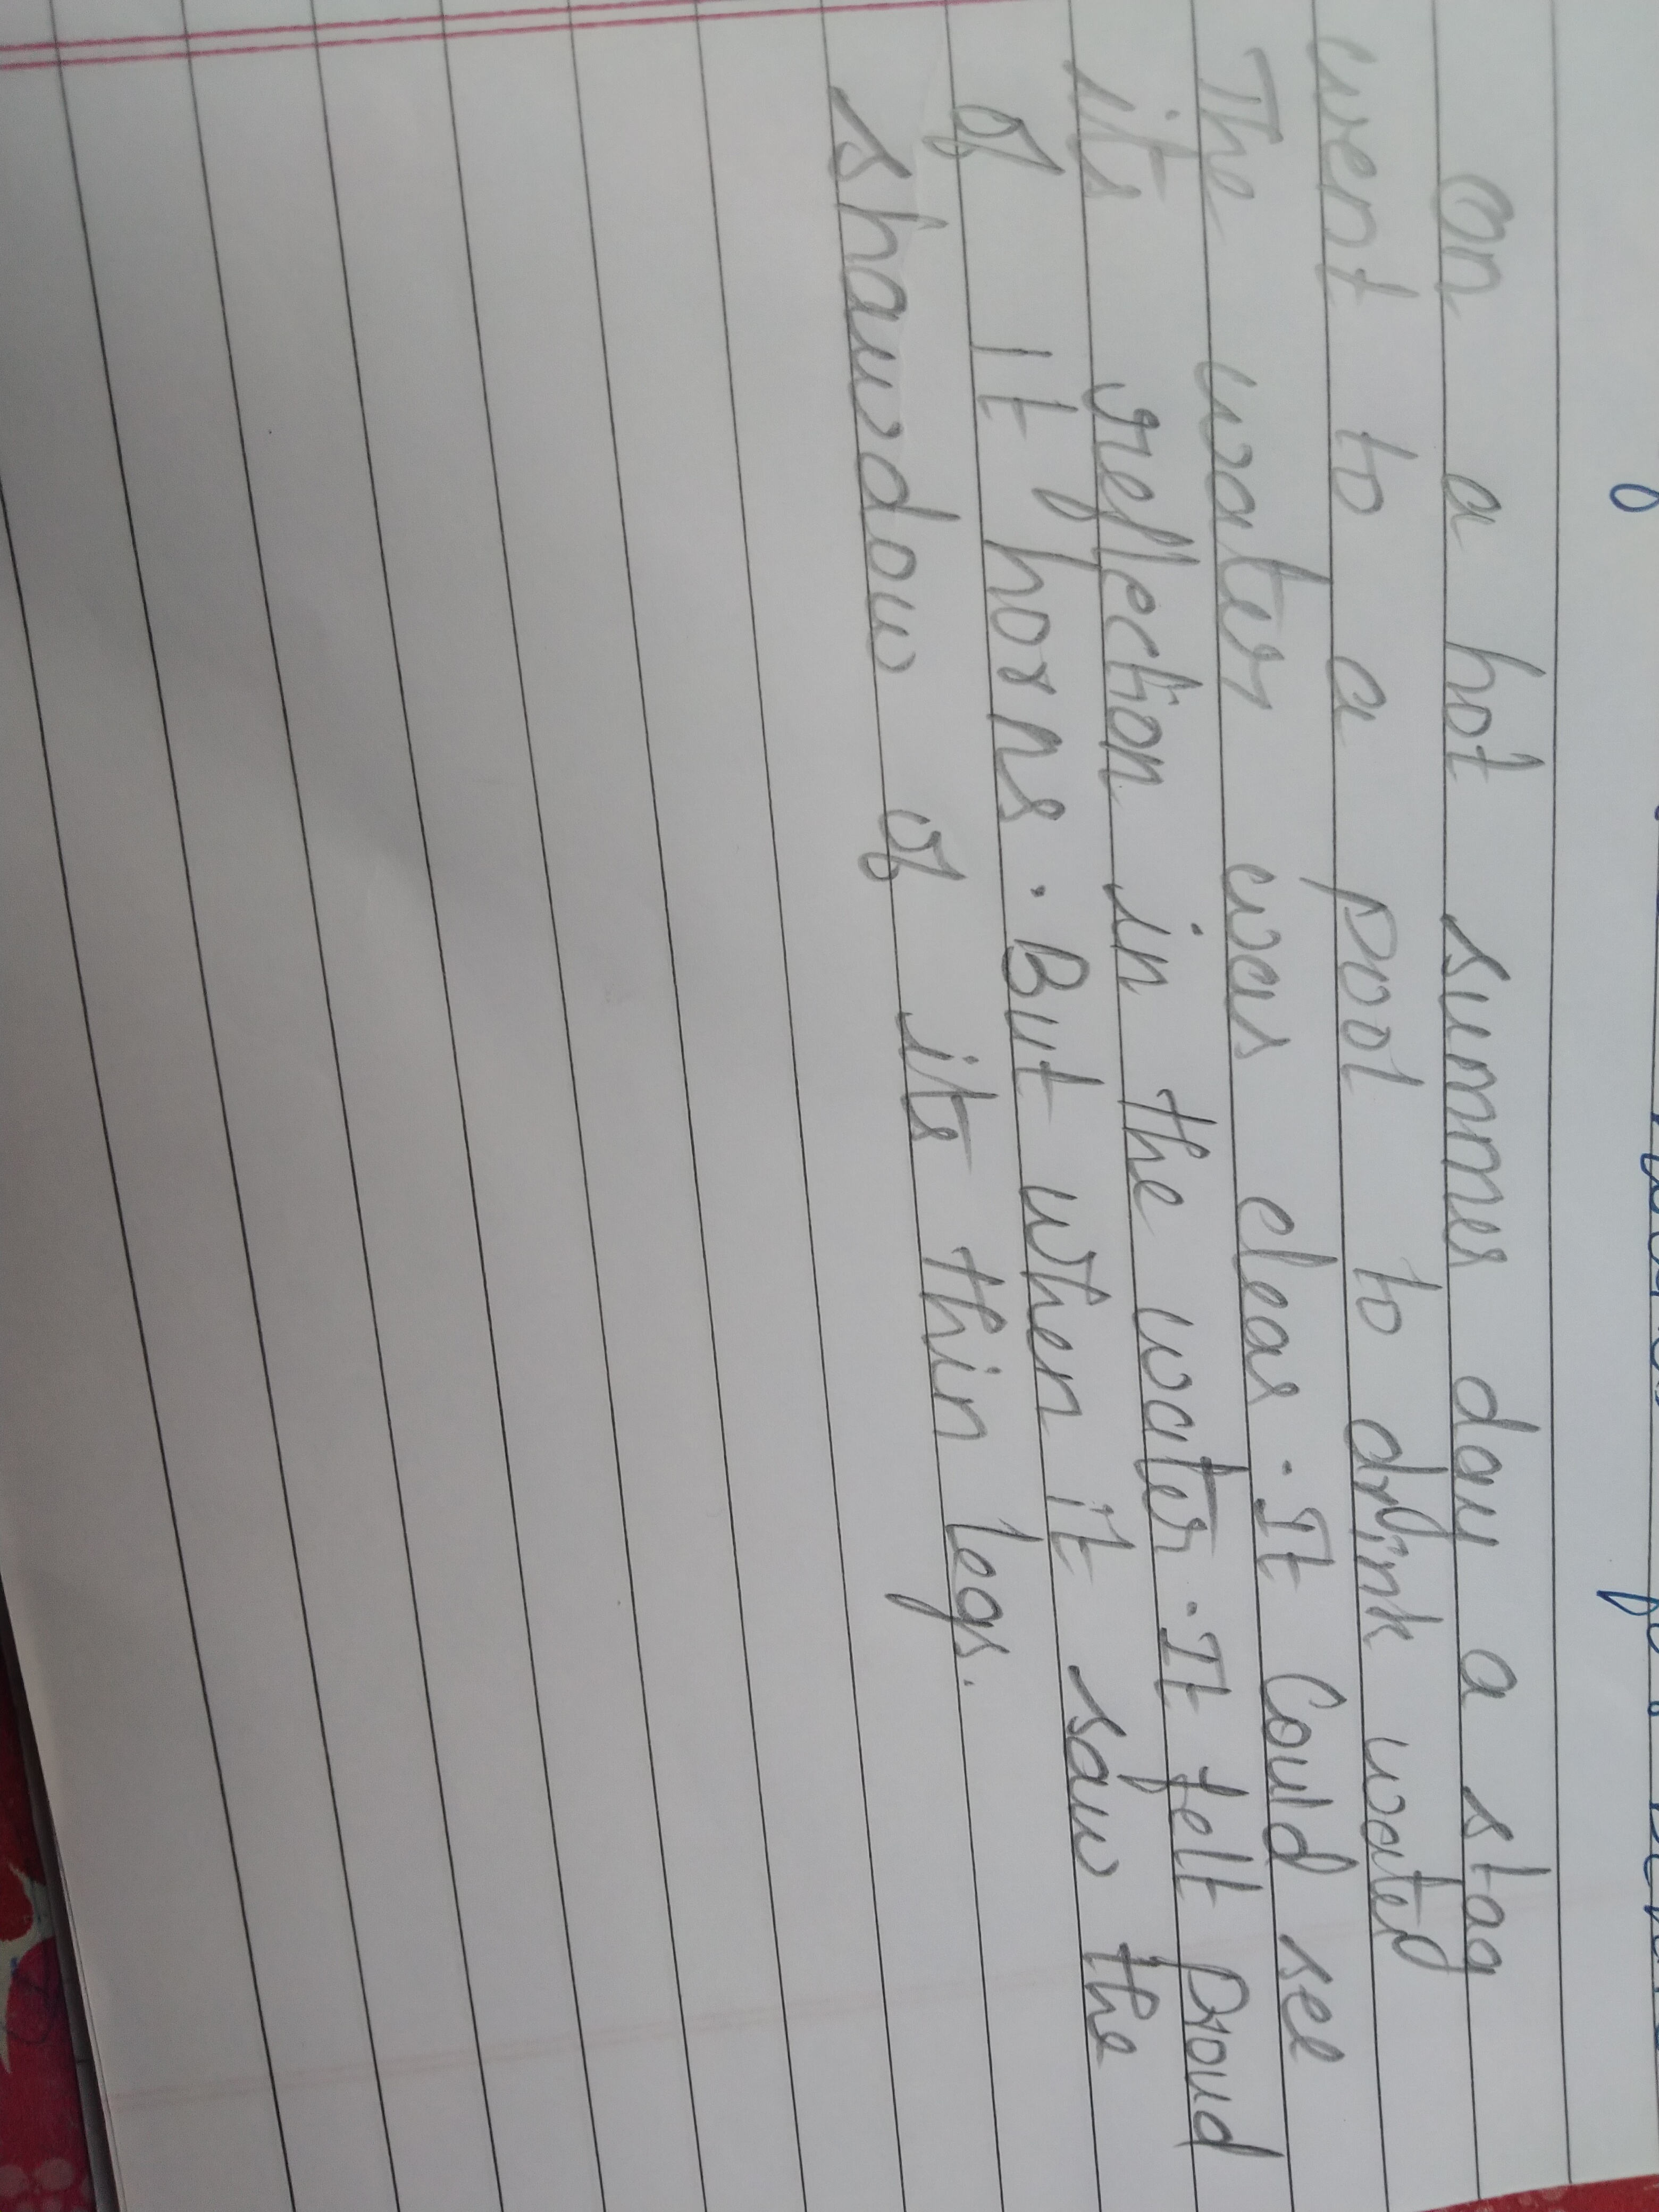 On a hot summer day a stag
went to a pool to drink wated
The water was clear. It Could see
its reflection in the water. It felt Proud
of It horns. But when it saw the
shawdow of its thin legs.